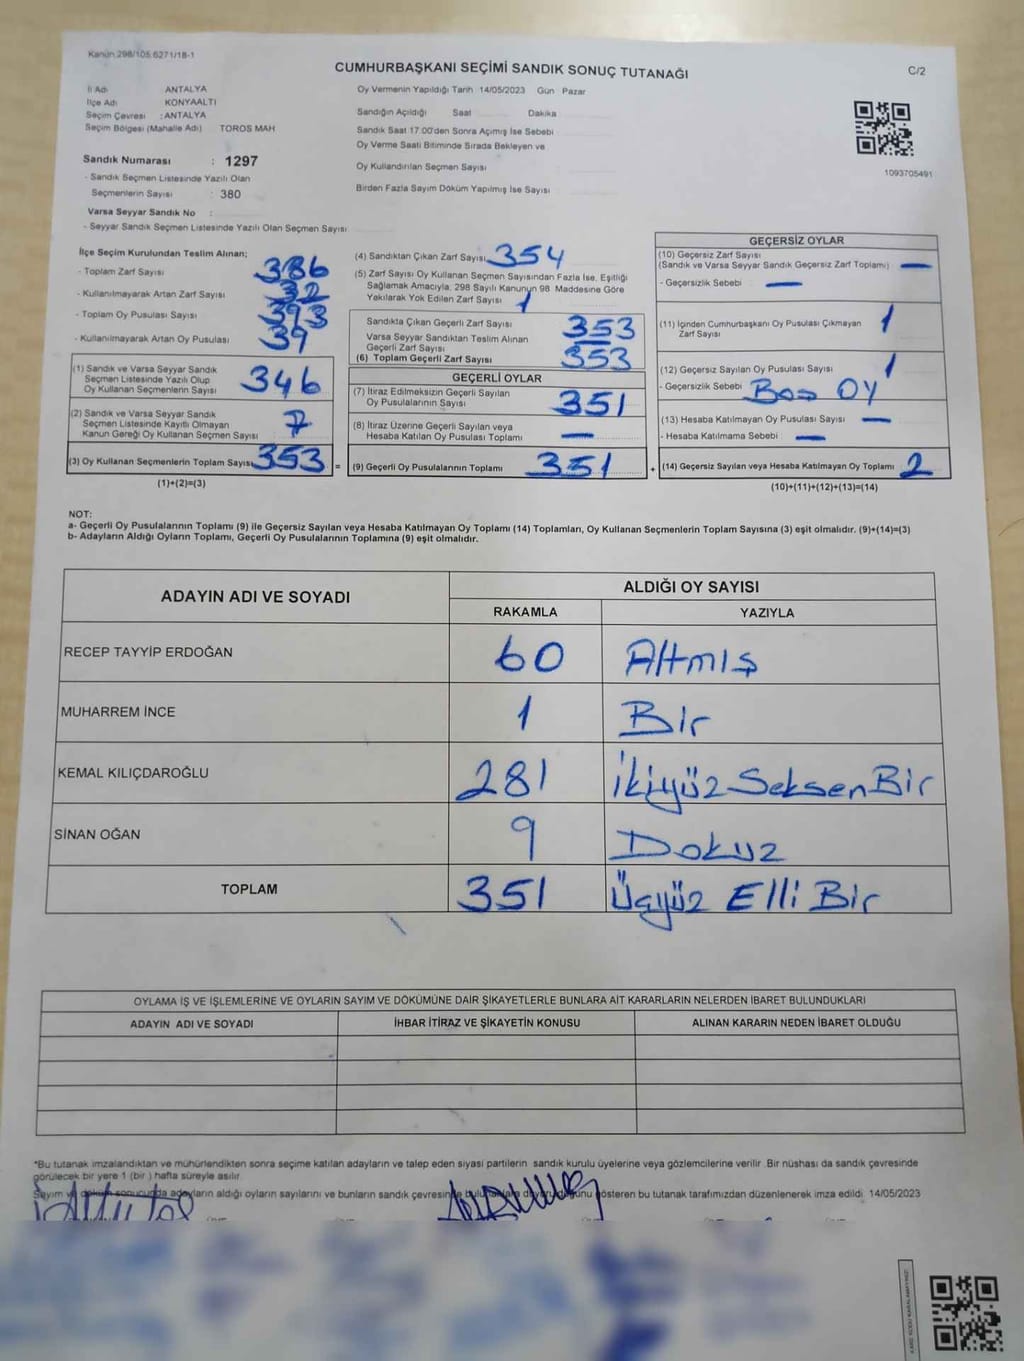 Kanun 298/105.6271/18-1
CUMHURBAŞKANI SEÇİMİ SANDIK SONUÇ TUTANAĞI
C/2
İl Adı ANTALYA
İlçe Adı KONYAALTI
Seçim Çevresi : ANTALYA
Seçim Bölgesi (Mahalle Adı) TOROS MAH
Sandık Numarası : 1297
- Sandık Seçmen Listesinde Yazılı Olan
Seçmenlerin Sayısı : 380
Varsa Seyyar Sandık No :
- Seyyar Sandık Seçmen Listesinde Yazılı Olan Seçmen Sayısı
Oy Vermenin Yapıldığı Tarih 14/05/2023 Gün Pazar
Sandığın Açıldığı Saat Dakika
Sandık Saat 17.00'den Sonra Açımış İse Sebebi
Oy Verme Saati Bitiminde Sırada Bekleyen ve
Oy Kullandırılan Seçmen Sayısı
Birden Fazla Sayım Döküm Yapılmış İse Sayısı
1093705491
İlçe Seçim Kurulundan Teslim Alınan;
- Toplam Zarf Sayısı 386
- Kullanılmayarak Artan Zarf Sayısı 32
- Toplam Oy Pusulası Sayısı 393
- Kullanılmayarak Artan Oy Pusulası 39
(1) Sandık ve Varsa Seyyar Sandık
Seçmen Listesinde Yazılı Olup
Oy Kullanan Seçmenlerin Sayısı 346
(2) Sandık ve Varsa Seyyar Sandık
Seçmen Listesinde Kayıtlı Olmayan
Kanun Gereği Oy Kullanan Seçmen Sayısı 7
(3) Oy Kullanan Seçmenlerin Toplam Sayısı 353 =
(1)+(2)=(3)
(4) Sandıktan Çıkan Zarf Sayısı 354
(5) Zarf Sayısı Oy Kullanan Seçmen Sayısından Fazla İse, Eşitliği
Sağlamak Amacıyla, 298 Sayılı Kanunun 98 Maddesine Göre
Yakılarak Yok Edilen Zarf Sayısı 1
Sandıkta Çıkan Geçerli Zarf Sayısı 353
Varsa Seyyar Sandıktan Teslim Alınan
Geçerli Zarf Sayısı
(6) Toplam Geçerli Zarf Sayısı 353
GEÇERLİ OYLAR
(7) İtiraz Edilmeksizin Geçerli Sayılan
Oy Pusulalarının Sayısı 351
(8) İtiraz Üzerine Geçerli Sayılan veya
Hesaba Katılan Oy Pusulası Toplamı —
(9) Geçerli Oy Pusulalarının Toplamı 351 +
GEÇERSİZ OYLAR
(10) Geçersiz Zarf Sayısı
(Sandık ve Varsa Seyyar Sandık Geçersiz Zarf Toplamı) —
- Geçersizlik Sebebi —
(11) İçinden Cumhurbaşkanı Oy Pusulası Çıkmayan
Zarf Sayısı 1
(12) Geçersiz Sayılan Oy Pusulası Sayısı 1
- Geçersizlik Sebebi Boş Oy
(13) Hesaba Katılmayan Oy Pusulası Sayısı —
- Hesaba Katılmama Sebebi —
(14) Geçersiz Sayılan veya Hesaba Katılmayan Oy Toplamı 2
(10)+(11)+(12)+(13)=(14)
NOT:
a- Geçerli Oy Pusulalarının Toplamı (9) ile Geçersiz Sayılan veya Hesaba Katılmayan Oy Toplamı (14) Toplamları, Oy Kullanan Seçmenlerin Toplam Sayısına (3) eşit olmalıdır. (9)+(14)=(3)
b- Adayların Aldığı Oyların Toplamı, Geçerli Oy Pusulalarının Toplamına (9) eşit olmalıdır.
ADAYIN ADI VE SOYADI
ALDIĞI OY SAYISI
RAKAMLA YAZIYLA
RECEP TAYYİP ERDOĞAN 60 Altmış
MUHARREM İNCE 1 Bir
KEMAL KILIÇDAROĞLU 281 İkiyüz Seksen Bir
SİNAN OĞAN 9 Dokuz
TOPLAM 351 Üçyüz Elli Bir
OYLAMA İŞ VE İŞLEMLERİNE VE OYLARIN SAYIM VE DÖKÜMÜNE DAİR ŞİKAYETLERLE BUNLARA AİT KARARLARIN NELERDEN İBARET BULUNDUKLARI
ADAYIN ADI VE SOYADI İHBAR İTİRAZ VE ŞİKAYETİN KONUSU ALINAN KARARIN NEDEN İBARET OLDUĞU
*Bu tutanak imzalandıktan ve mühürlendikten sonra seçime katılan adayların ve talep eden siyasi partilerin sandık kurulu üyelerine veya gözlemcilerine verilir. Bir nüshası da sandık çevresinde
görülecek bir yere 1 (bir) hafta süreyle asılır.
Sayım ve döküm sonucunda adayların aldığı oyların sayılarını ve bunların sandık çevresinde gösteren bu tutanak tarafımızdan düzenlenerek imza edildi. 14/05/2023